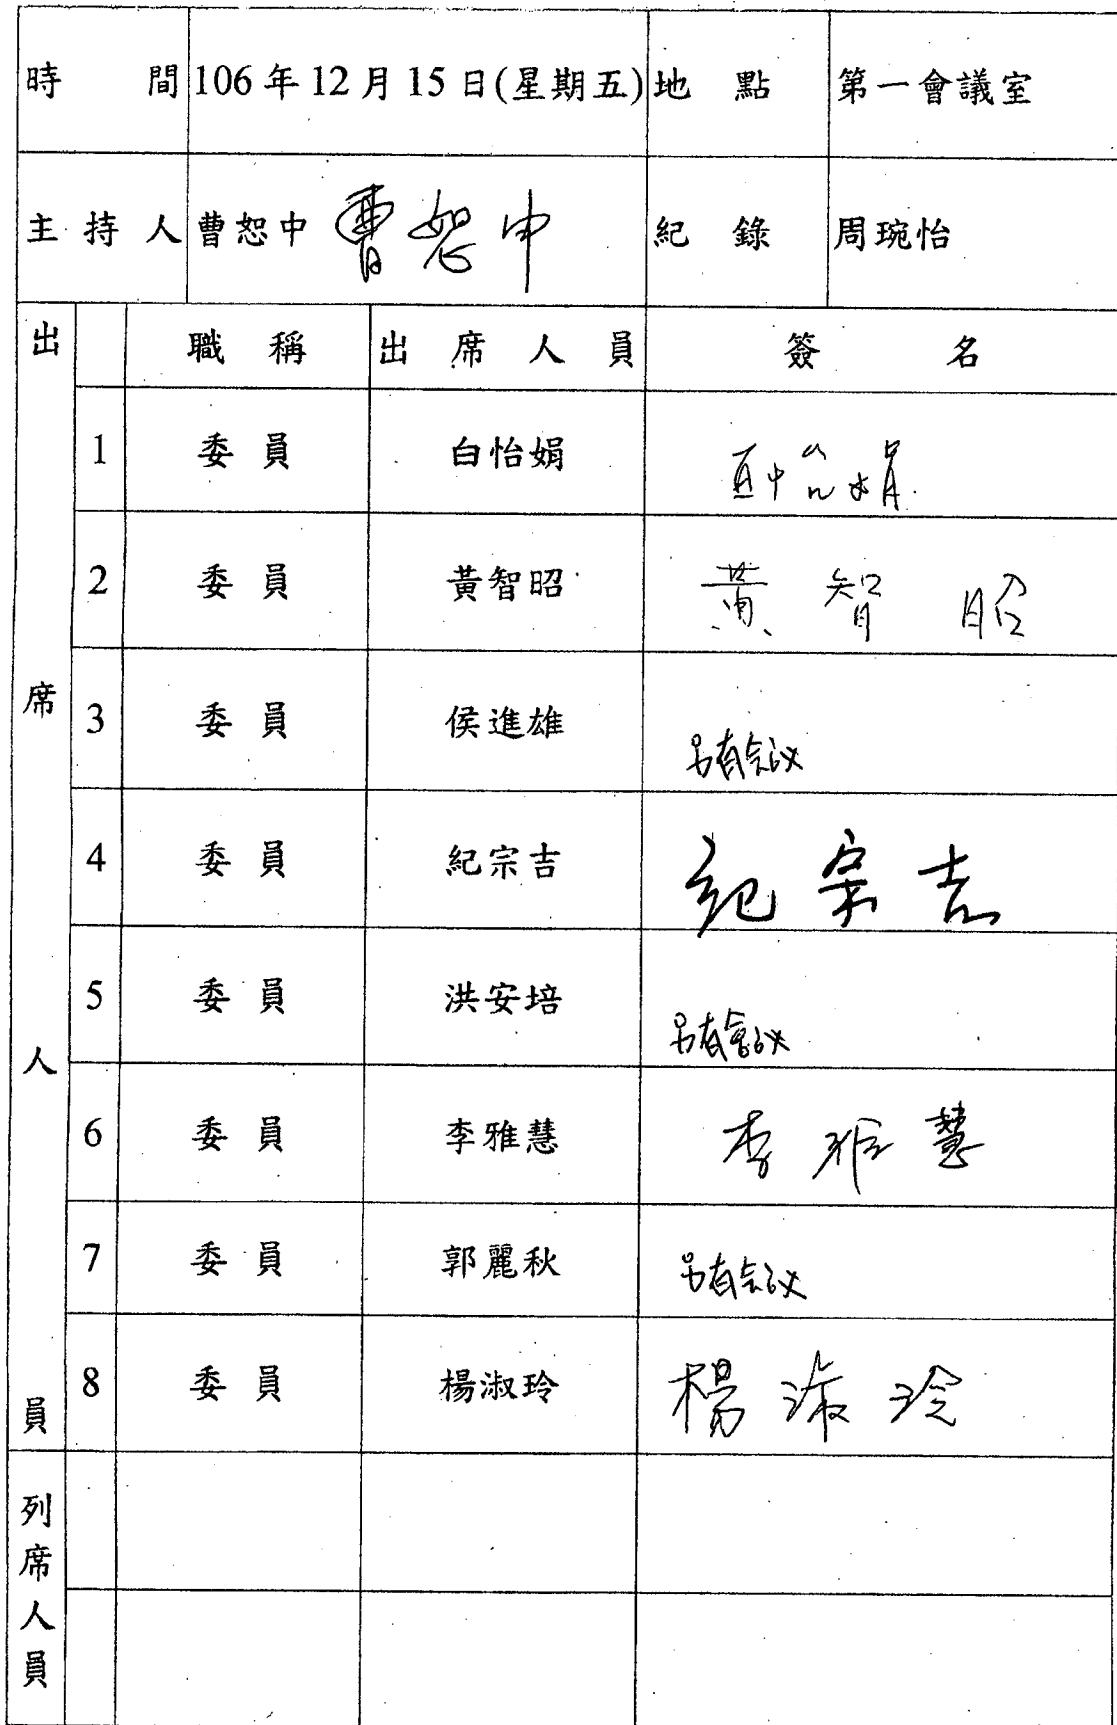 時間 106年12月15日(星期五) 地點 第一會議室
主持人 曹恕中 曹恕中 紀錄 周琬怡
出席人員 職稱 出席人員 簽名
1 委員 白怡娟 白怡娟
2 委員 黃智昭 黃智昭
3 委員 侯進雄 另有会议
4 委員 紀宗吉 紀宗吉
5 委員 洪安培 另有會议
6 委員 李雅慧 李雅慧
7 委員 郭麗秋 另有会议
8 委員 楊淑玲 楊淑玲
列席人員